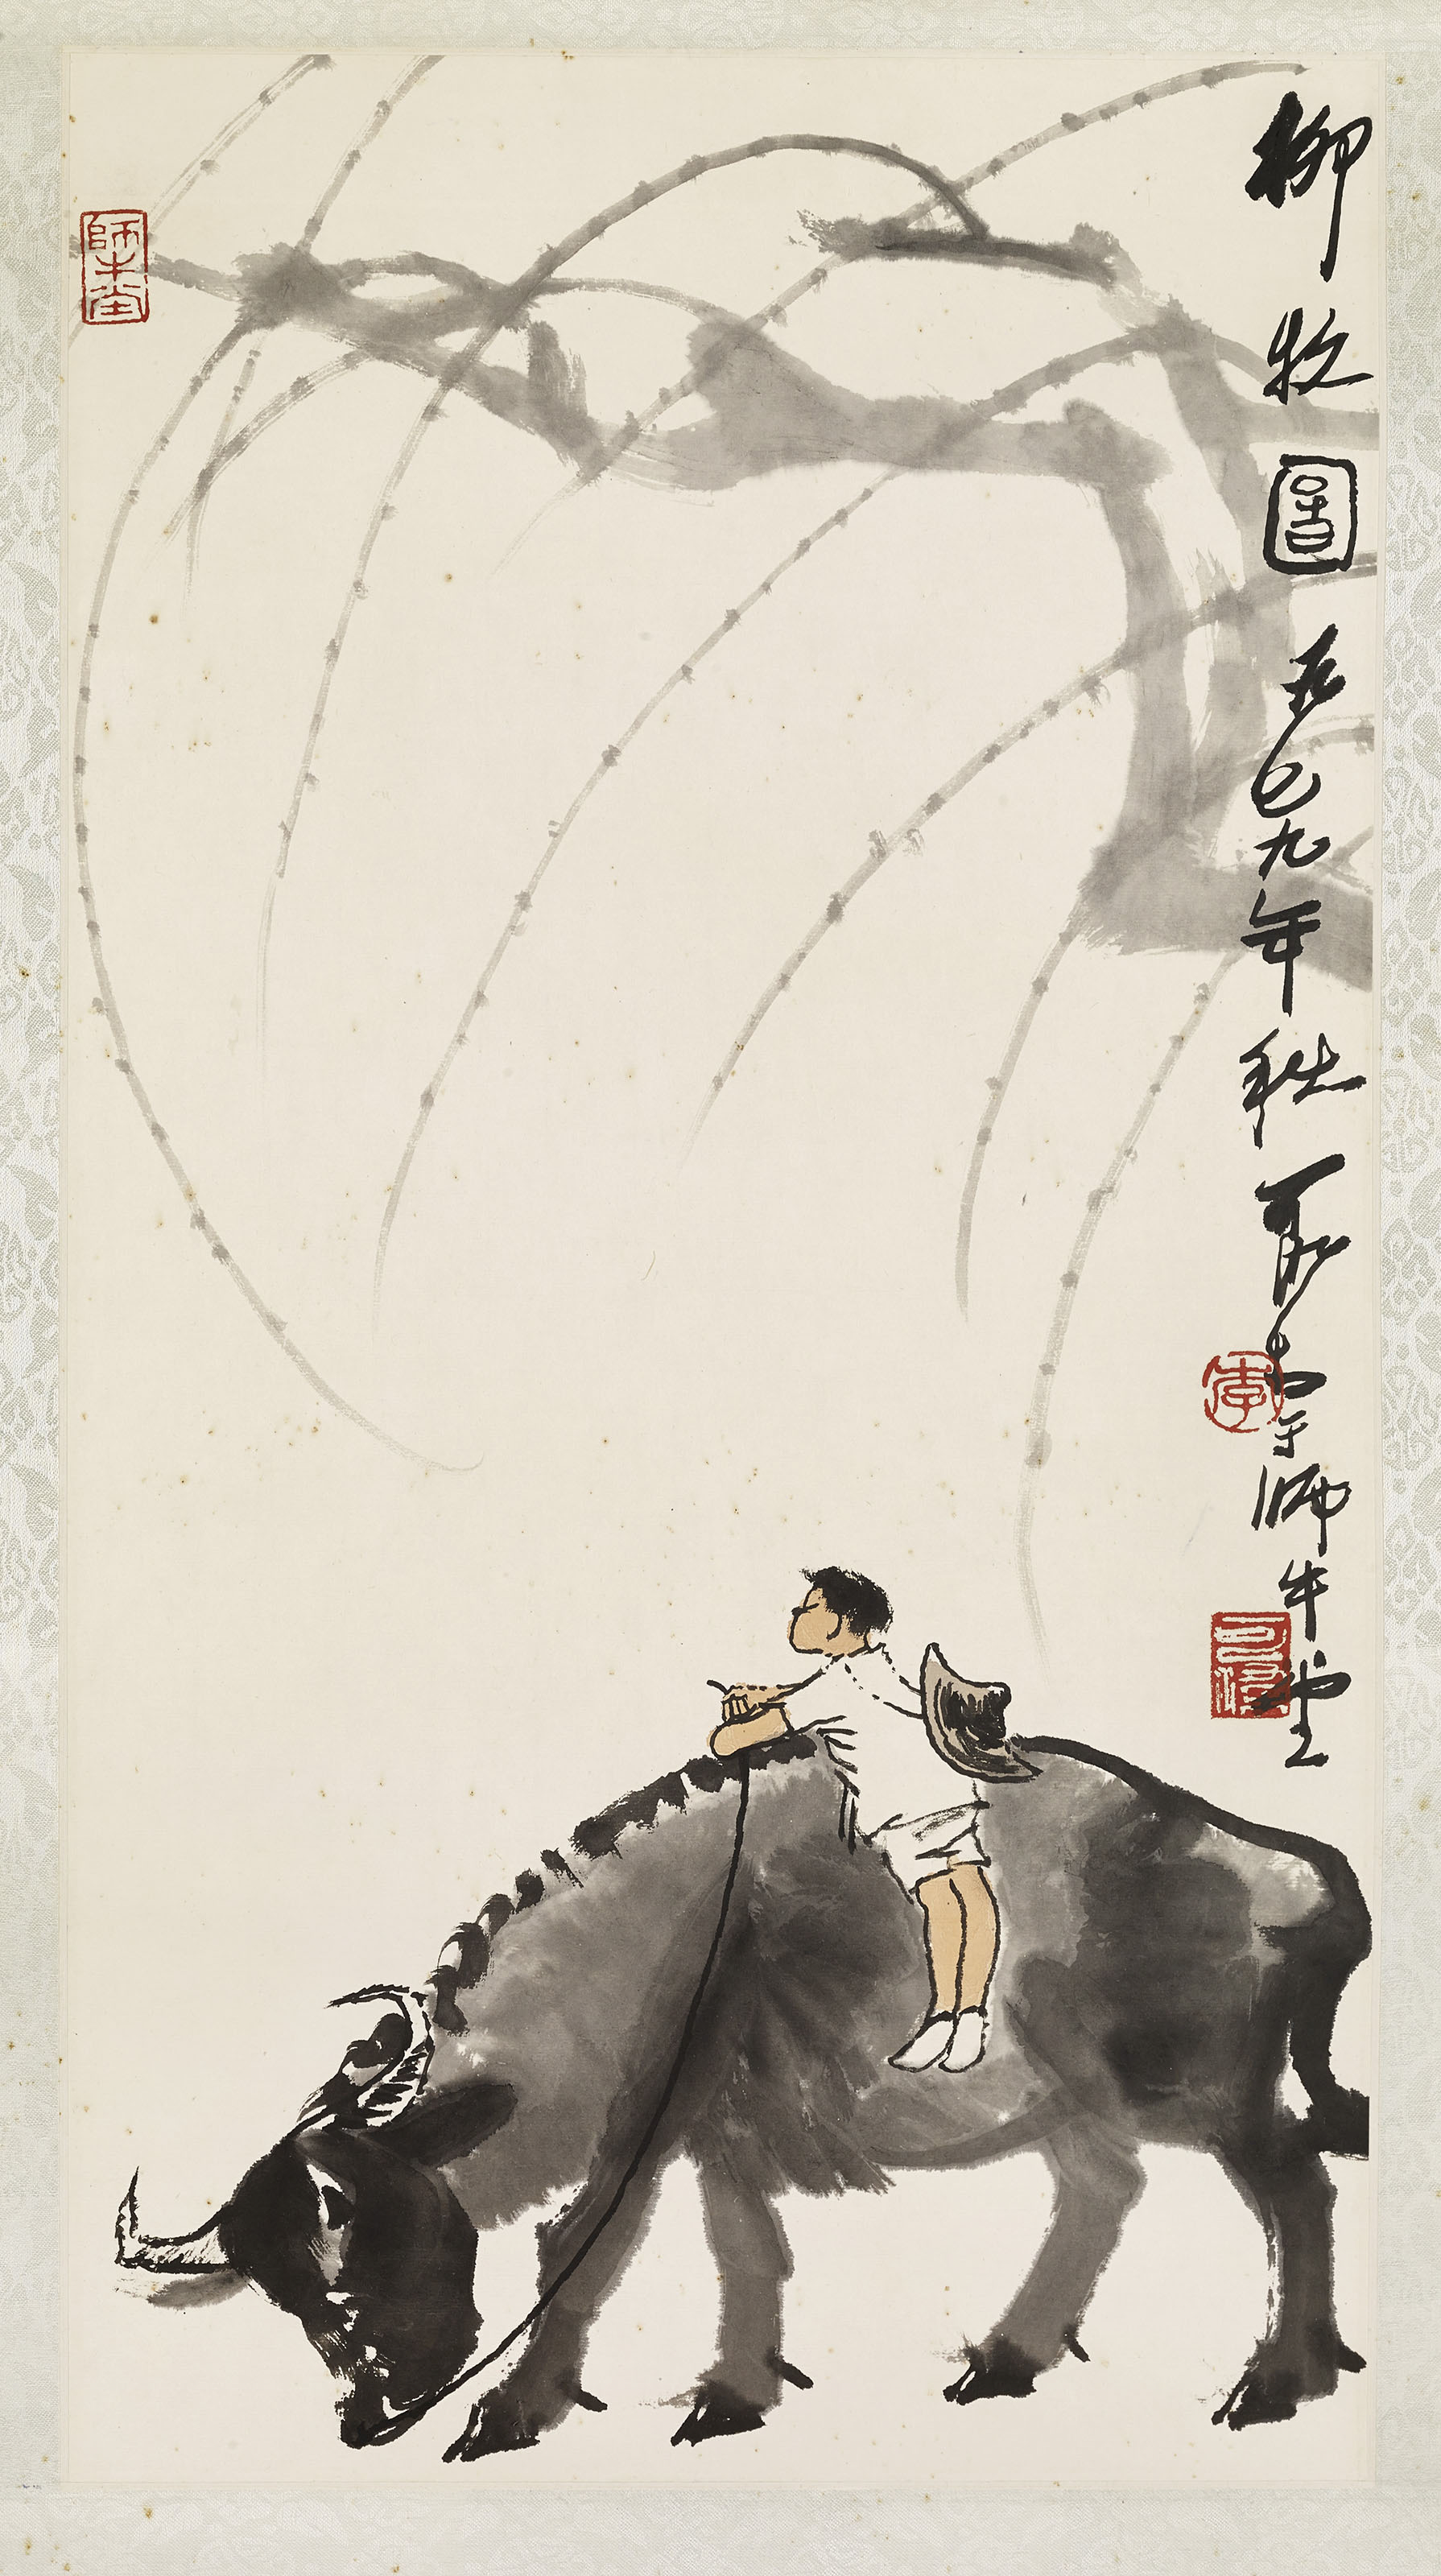 柳牧圖 九年秋可染于師牛堂
李
可染
師牛堂